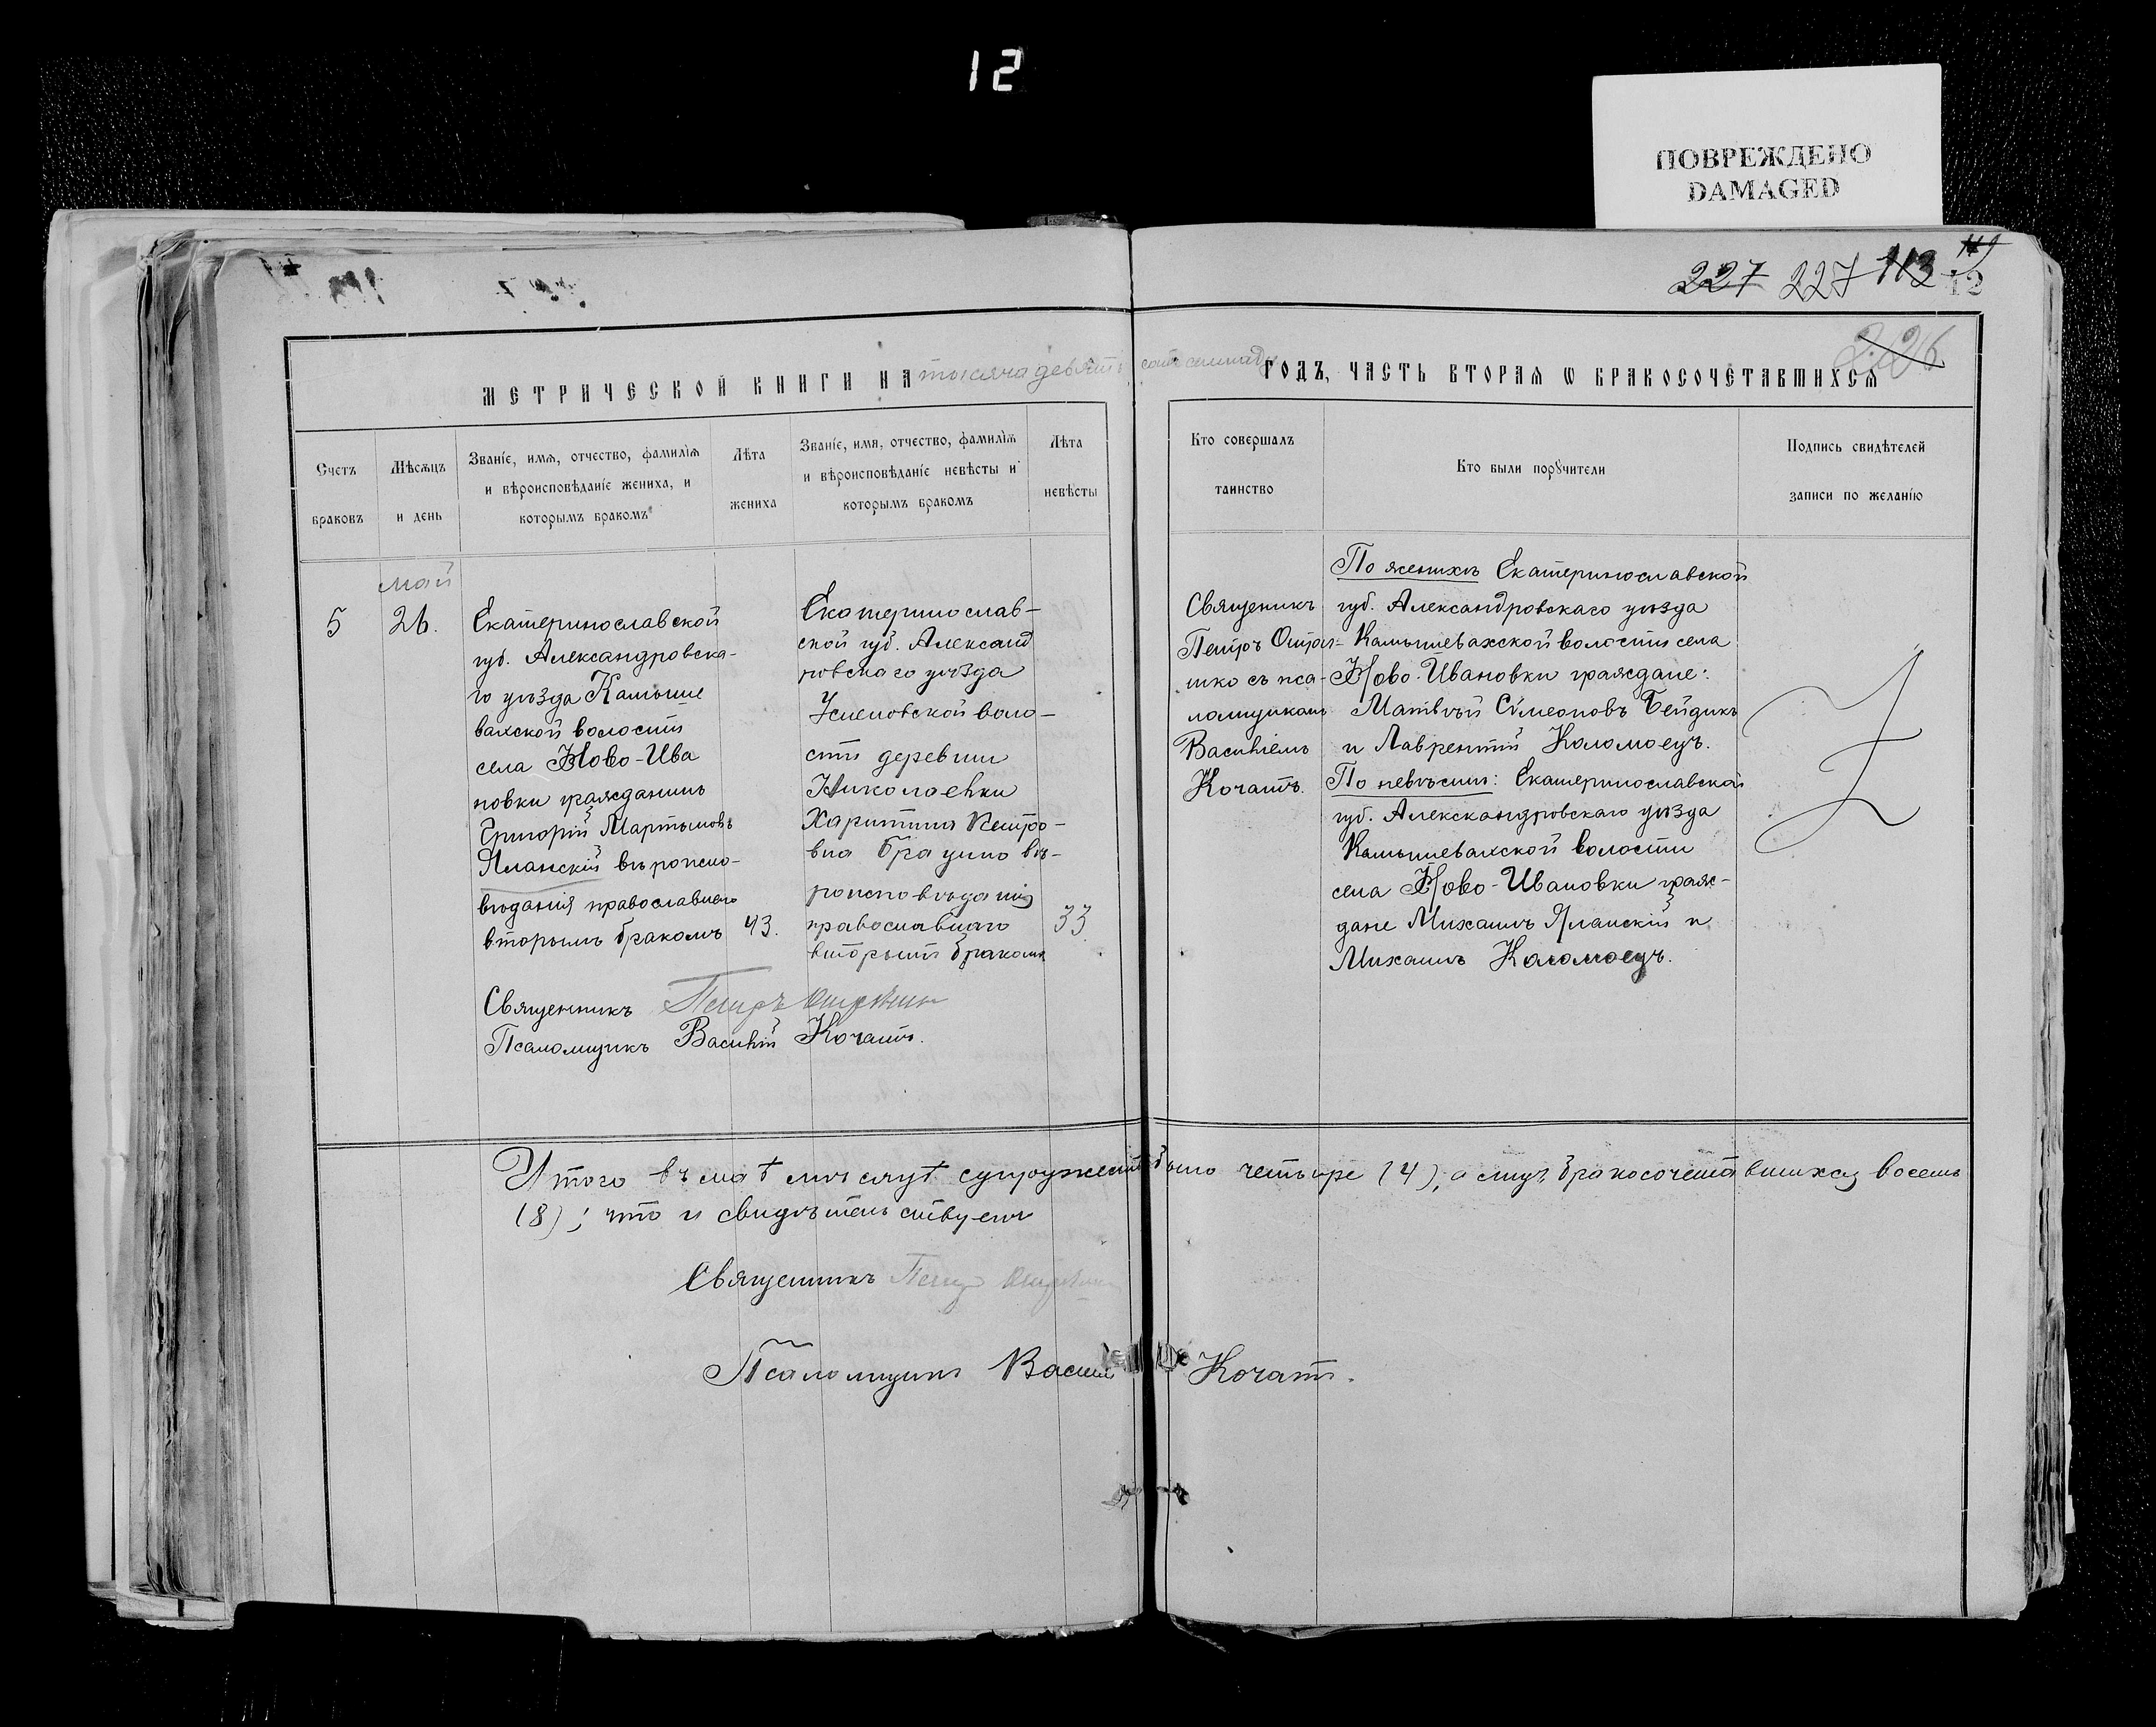 12
ПОВРЕЖДЕНО
DAMAGED
227 227 113
12
226
МЕТРИЧЕСКОЙ КНИГИ НА тысяча девять сотъ ГОДЪ, ЧАСТЬ ВТОРАЯ Ѡ БРАКОСОЧЕТАВШИХСЯ
Счетъ
браковъ
Мѣсяцъ
и день
Званіе, имя, отчество, фамилія
и вѣроисповѣданіе жениха, и
которымъ бракомъ
Лѣта
жениха
Званіе, имя, отчество, фамилія
и вѣроисповѣданіе невѣсты и
которымъ бракомъ
Лѣта
невѣсты
Кто совершалъ
таинство
Кто были порꙋчители
Подпись свидѣтелей
записи по желанію
май
5
26.
Екатеринославской
губ. Александровска-
го уѣзда Камыше
вахской волости
села Ново-Ива
новки гражданинъ
Григорій Мартыновъ
Яланскій вѣроиспо-
вѣданія православнаго
вторымъ бракомъ
43.
Екатеринослав-
ской губ. Александ
ровскаго уѣзда
Успеновской воло-
сти деревни
Николаевки
Харитина Петро-
вна вѣ-
роисповѣданія
православнаго
вторымъ бракомъ
33
Священикъ
Петръ
шко съ пса-
ломщикомъ
Василіемъ
Кочатъ.
По женихѣ Екатеринославской
губ. Александровскаго уѣзда
Камышевахской волости села
Ново-Ивановки граждане:
Матвѣй Сѵмеоновъ Бейдикъ
и Лаврентій Коломоецъ.
По невѣстѣ: Екатеринославской
губ. Алекскандровскаго уѣзда
Камышевахской волости
села Ново-Ивановки граж-
дане Михаилъ Яланскій и
Михаилъ Коломоецъ.
Священникъ Петръ
Псаломщикъ Василій Кочатъ.
Итого въ маѣ мѣсяцѣ супружествъ было четыре (4), а бракосочетавшихся восемь
(8); что и свидѣтельствуемъ
Священникъ Петръ
Псаломщикъ Василій Кочатъ.